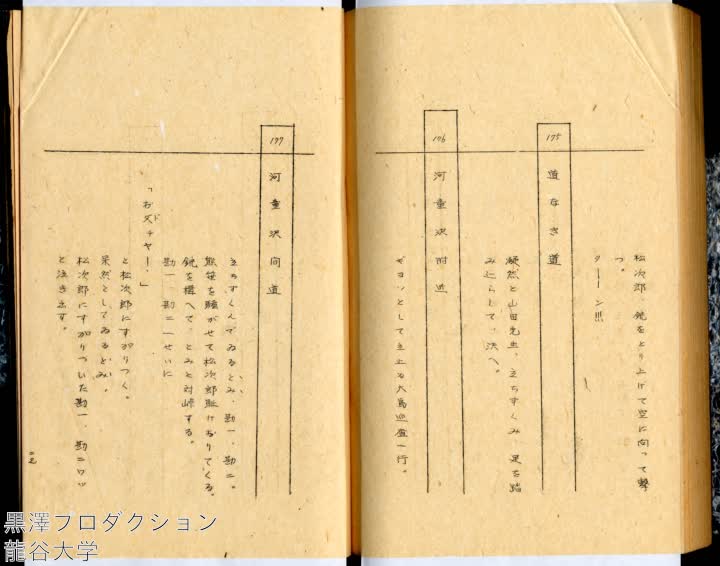 松次郎、銃をとり上げて空に向って撃
つ。
ターーン!!!
175
道なき道
凝然と山田先生、立ちすくみ、足を踏
み辷らして、沢へ。
106
河童沢附近
ギョッとして立止る大島巡査一行。
177
河童沢間道
立ちすくんでゐるとみ、勘一、勘二。
熊笹を騒がせて松次郎駈け おりてくる。
銃を構へて、とみと対峙する。
勘一、勘二一せいに
「お父ドチャー、」
と松次郎にすがりつく。
呆然としてゐるとみ。
松次郎にすがりついた勘一、勘二ワッ
と泣き出す。
黒澤プロダクション
龍谷大学